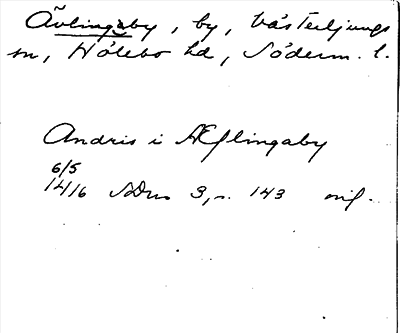 Ävlingeby, by, Västerljungs
sn, Hölebo hd, Söderm. l.
Andris i Æflingaby
6/5
1416 SDns 3, s. 143 orig.